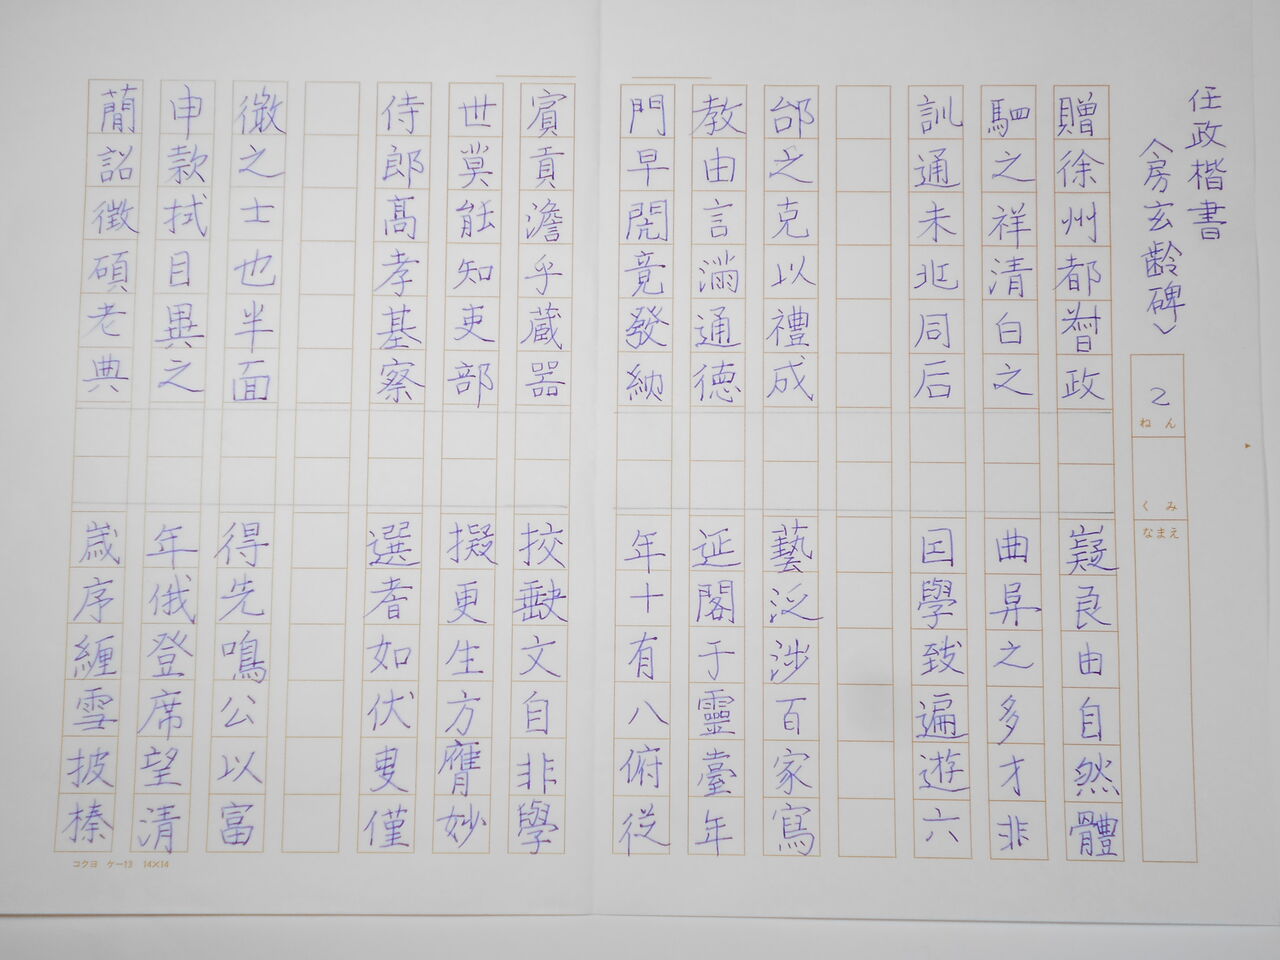 任政楷書
〈房玄齢碑〉
2
ねん
くみ
なまえ
贈徐州都督政
嶷良由自然體
駟之祥清白之
曲異之多才非
訓通未兆同后
因學致遍遊六
邰之克以禮成
藝泛涉百家寫
教由言滿通德
延閣于靈臺年
門早閱竟發納
年十有八俯從
賓貢澹乎蔵器
挍蓺文自非學
世莫能知吏部
擬更生方膺妙
侍郎高孝基察
選者如伏叟僅
徵之士也半面
得先鳴公以富
申款拭目異之
年俄登席望清
蕑詔徵碩老典
歲序纏雪披榛
コクヨ ケー13 14×14